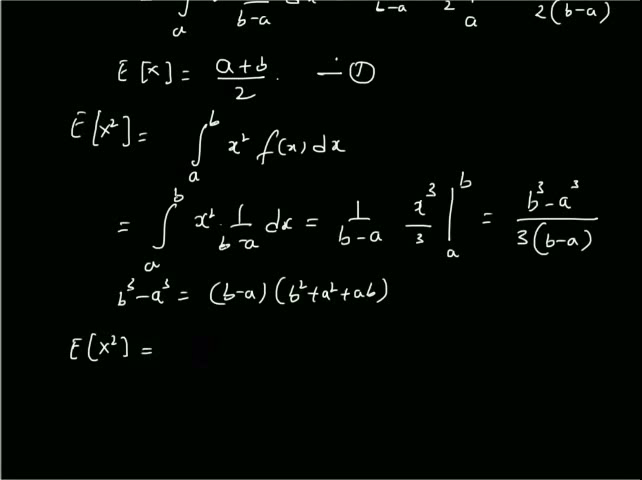 ∫ₐ b-a b-a 2 a 2(b-a)
E[x] = (a+b)/2 . — ①
E[x²] = ∫ₐᵇ x² f(x) dx
= ∫ₐᵇ x² · 1/(b-a) dx = 1/(b-a) x³/3 |ₐᵇ = (b³-a³)/(3(b-a))
b³-a³ = (b-a)(b²+a²+ab)
E[x²] =